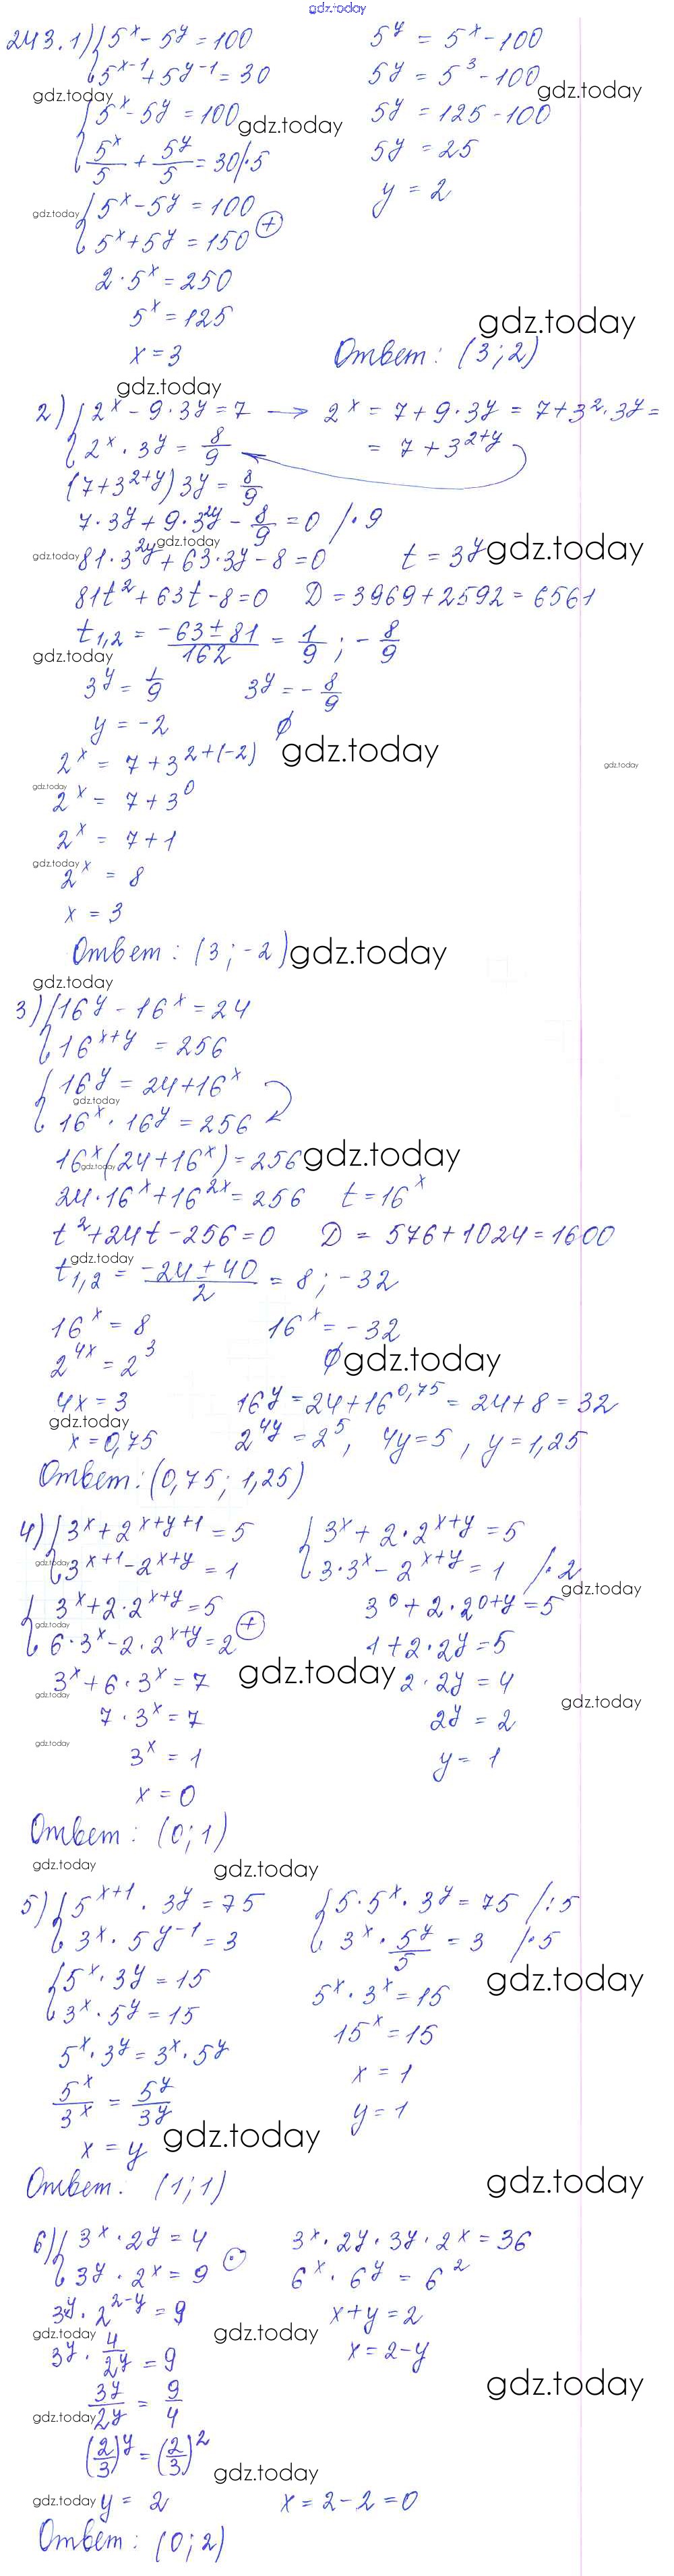 gdz.today
243. 1) { 5^x - 5^y = 100
5^{x-1} + 5^{y-1} = 30
gdz.today
{ 5^x - 5^y = 100
gdz.today
5^x/5 + 5^y/5 = 30 /·5
gdz.today
{ 5^x - 5^y = 100
5^x + 5^y = 150 (+)
2 · 5^x = 250
5^x = 125
x = 3
5^y = 5^x - 100
5^y = 5^3 - 100
gdz.today
5^y = 125 - 100
5^y = 25
y = 2
gdz.today
Ответ: (3; 2)
gdz.today
2) { 2^x - 9·3^y = 7 → 2^x = 7 + 9·3^y = 7 + 3^2·3^y =
2^x · 3^y = 8/9
= 7 + 3^{2+y}
(7 + 3^{2+y}) 3^y = 8/9
7·3^y + 9·3^{2y} - 8/9 = 0 /·9
gdz.today
gdz.today
81·3^{2y} + 63·3^y - 8 = 0 t = 3^y
gdz.today
81t^2 + 63t - 8 = 0 D = 3969 + 2592 = 6561
t_{1,2} = (-63 ± 81)/162 = 1/9 ; -8/9
gdz.today
3^y = 1/9 3^y = -8/9
y = -2 ∅
gdz.today
2^x = 7 + 3^{2+(-2)}
gdz.today
gdz.today
2^x = 7 + 3^0
2^x = 7 + 1
gdz.today
2^x = 8
x = 3
Ответ: (3; -2)
gdz.today
gdz.today
3) { 16^y - 16^x = 24
16^{x+y} = 256
{ 16^y = 24 + 16^x
gdz.today
16^x · 16^y = 256
16^x (24 + 16^x) = 256
gdz.today
gdz.today
24·16^x + 16^{2x} = 256 t = 16^x
t^2 + 24t - 256 = 0 D = 576 + 1024 = 1600
gdz.today
t_{1,2} = (-24 ± 40)/2 = 8; -32
16^x = 8 16^x = -32
2^{4x} = 2^3 ∅
gdz.today
4x = 3 16^y = 24 + 16^{0,75} = 24 + 8 = 32
gdz.today
x = 0,75 2^{4y} = 2^5, 4y = 5, y = 1,25
Ответ: (0,75; 1,25)
4) { 3^x + 2^{x+y+1} = 5 { 3^x + 2·2^{x+y} = 5
gdz.today
3^{x+1} - 2^{x+y} = 1 3·3^x - 2^{x+y} = 1 /·2
gdz.today
{ 3^x + 2·2^{x+y} = 5 3^0 + 2·2^{0+y} = 5
gdz.today
6·3^x - 2·2^{x+y} = 2 (+) 1 + 2·2^y = 5
3^x + 6·3^x = 7 2·2^y = 4
gdz.today
gdz.today
gdz.today
7·3^x = 7 2^y = 2
gdz.today
3^x = 1 y = 1
x = 0
Ответ: (0; 1)
gdz.today
gdz.today
5) { 5^{x+1} · 3^y = 75 { 5·5^x·3^y = 75 /:5
3^x · 5^{y-1} = 3 3^x · 5^y/5 = 3 /·5
{ 5^x · 3^y = 15 5^x · 3^x = 15
gdz.today
3^x · 5^y = 15 15^x = 15
5^x · 3^y = 3^x · 5^y x = 1
5^x/3^x = 5^y/3^y y = 1
x = y
gdz.today
Ответ: (1; 1)
gdz.today
6) { 3^x · 2^y = 4 3^x · 2^y · 3^y · 2^x = 36
3^y · 2^x = 9 (·) 6^x · 6^y = 6^2
3^y · 2^{2-y} = 9 x + y = 2
gdz.today
gdz.today
3^y · 4/2^y = 9 x = 2 - y
gdz.today
3^y/2^y = 9/4
gdz.today
(2/3)^y = (2/3)^2
gdz.today
gdz.today
y = 2 x = 2 - 2 = 0
Ответ: (0; 2)